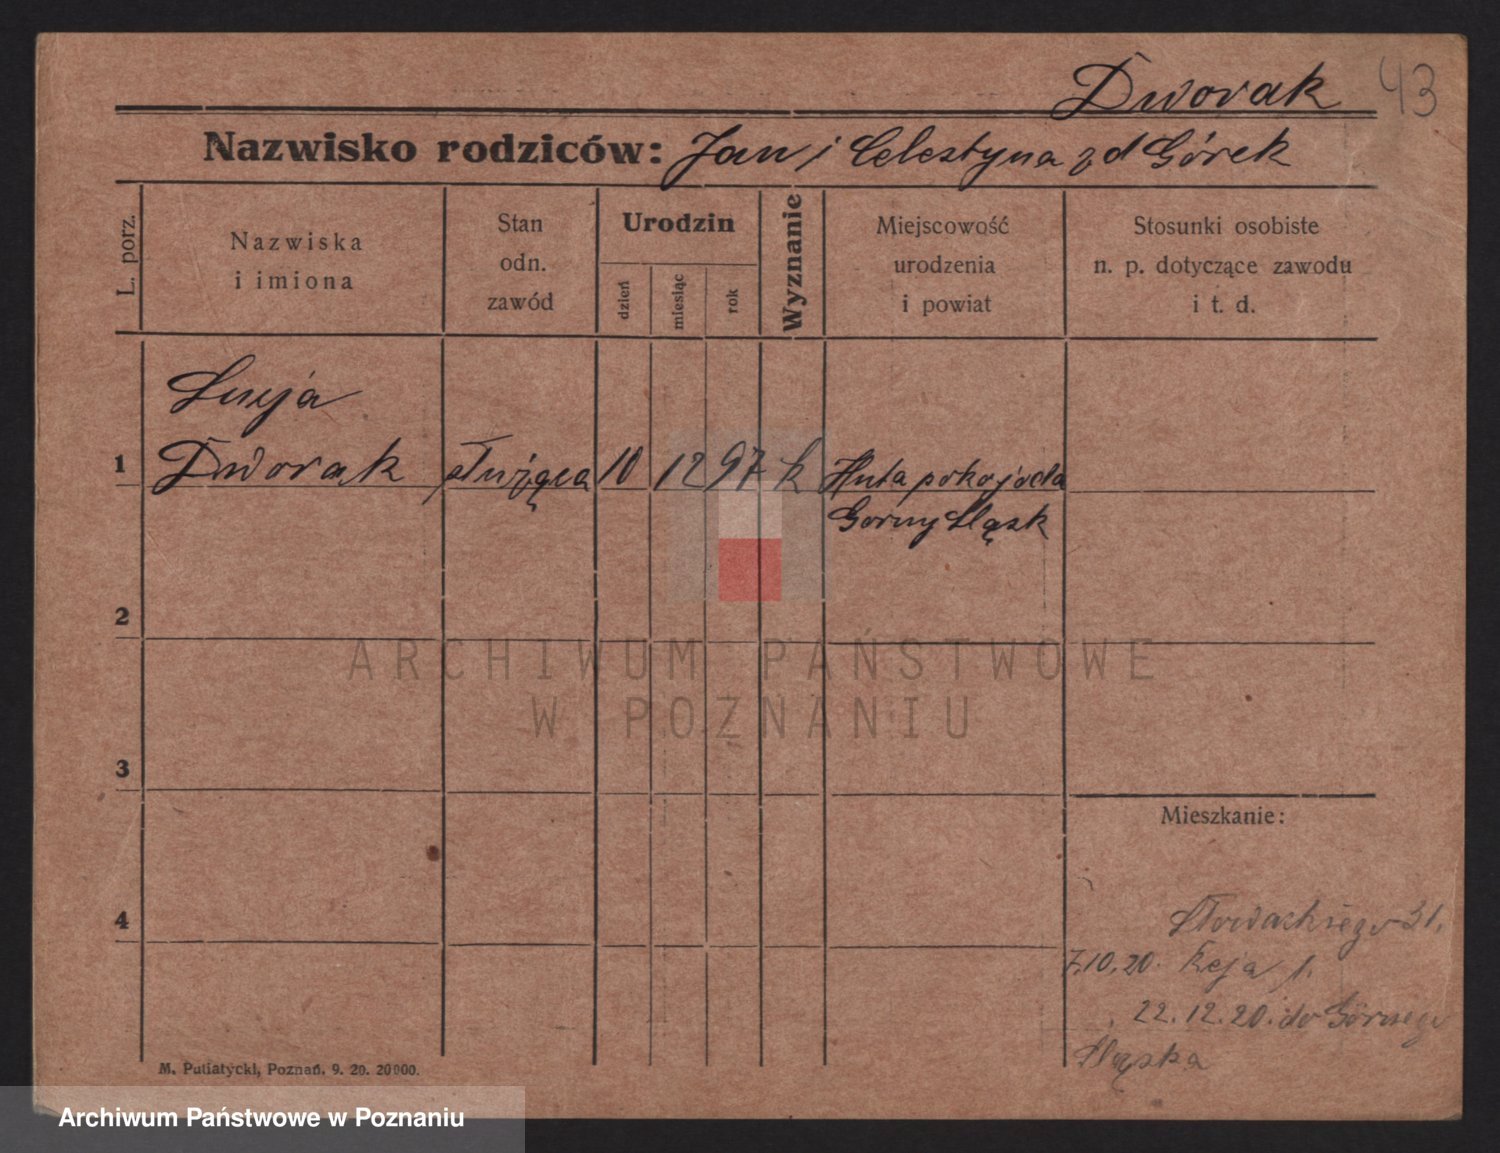 Dworak 43
Nazwisko rodziców: Jan i Celestyna zd Górek
L. porz.
Nazwiska
i imiona
Stan
odn.
zawód
Urodzin
dzień
miesiąc
rok
Wyznanie
Miejscowość
urodzenia
i powiat
Stosunki osobiste
n. p. dotyczące zawodu
i t. d.
Łucja
1 Dworak służąca 10 12 97 k Huta pokojoda
Gorny Śląsk
2
ARCHIWUM PAŃSTWOWE
W POZNANIU
3
Mieszkanie:
4
Słowackiego 31.
7.10.20. Reja 1.
22.12.20. do Górnego
Śląska
M. Putiatycki, Poznań. 9. 20. 20000.
Archiwum Państwowe w Poznaniu